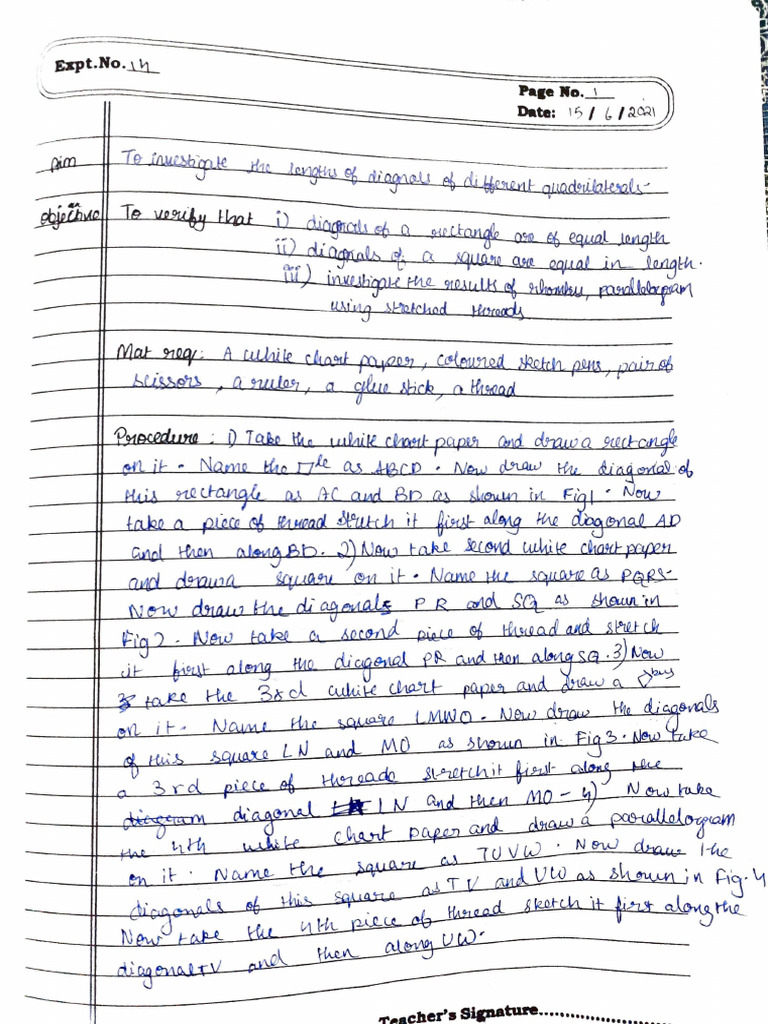 Expt.No. 14
Page No. 1
Date: 15/6/2021
Aim To investigate the lengths of diagnals of different quadrilaterals-
objective To verify that i) diagnals of a rectangle are of equal length
ii) diagnals of a square are equal in length.
iii) investigate the results of rhombus, parallelogram
using stretched threads
Mat req: A white chart paper, coloured sketch pens, pair of
scissors, a ruler, a glue stick, a thread
Procedure: i) Take the white chart paper and draw a rectangle
on it. Name the le as ABCD. Now draw the diagonal of
this rectangle as AC and BD as shown in Fig1. Now
take a piece of thread stretch it first along the diagonal AD
and then along BD. 2) Now take second white chart paper
and draw a square on it. Name the square as PQRS-
Now draw the diagonals PR and SQ as shown in
Fig2. Now take a second piece of thread and stretch
it first along the diagonal PR and then along SQ. 3) Now
take the 3rd white chart paper and draw a
on it. Name the square LMNO. Now draw the diagonals
of this square LN and MO as shown in Fig3. Now take
a 3rd piece of threade stretch it first along the
diagram diagonal LN and then MO - 4) Now take
the 4th white chart paper and draw a parallelogram
on it. Name the square as TUVW. Now draw the
diagonals of this square as TV and UW as shown in Fig.4
Now take the 4th piece of thread sketch it first along the
diagonal TV and then along UW.
Teacher's Signature..............